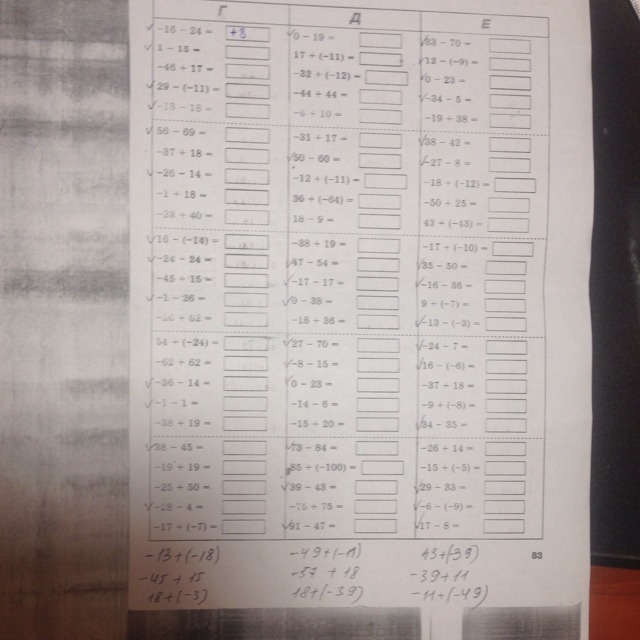 Г Д Е
-16 - 24 = +8 0 - 19 = 33 - 70 =
1 - 15 = 17 + (-11) = 12 - (-9) =
-46 + 17 = -32 + (-12) = 0 - 23 =
29 - (-11) = -44 + 44 = -34 - 5 =
-18 - 18 = -6 + 10 = -19 + 38 =
56 - 69 = -31 + 17 = 38 - 42 =
-37 + 18 = 50 - 60 = -27 - 8 =
-26 - 14 = -12 + (-11) = -18 + (-12) =
-1 + 18 = 36 + (-64) = -50 + 25 =
-23 + 40 = 18 - 9 = 43 + (-43) =
16 - (-14) = -38 + 19 = -17 + (-10) =
-24 - 24 = 47 - 54 = 35 - 50 =
-45 + 15 = -17 - 17 = -16 - 36 =
-1 - 26 = 0 - 38 = 9 + (-7) =
-18 + 36 = -13 - (-3) =
54 + (-24) = 27 - 70 = -24 - 7 =
-62 + 62 = -8 - 15 = 16 - (-6) =
-36 - 14 = 0 - 23 = -37 + 18 =
-1 - 1 = -14 - 6 = -9 + (-8) =
-38 + 19 = -15 + 20 = 34 - 35 =
38 - 45 = 73 - 84 = -26 + 14 =
-19 + 19 = 85 + (-100) = -15 + (-5) =
-25 + 50 = 39 - 43 = 29 - 33 =
-28 - 4 = -75 + 75 = -6 - (-9) =
-17 + (-7) = 91 - 47 = 17 - 8 =
83
-13+(-18) -49+(-11) 43+(39)
-45+15 -57 +18 -39+11
18+(-3) 18+(-39) -11+(-49)